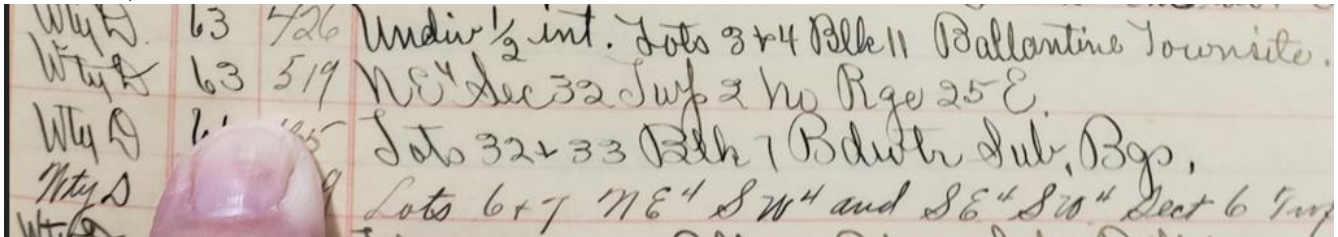 Wty D. 63 426 Undiv 1/2 int. Lots 3 & 4 Blk 11 Ballantine Townsite.
Wty D 63 519 NE4 Sec 32 Twp 2 No Rge 25 E.
Wty D Lots 32 & 33 Blk 7 Bdwtr Sub, Bgs,
Wty D Lots 6 & 7 NE4 SW4 and SE4 SW4 Sect 6 Twp
Wty D